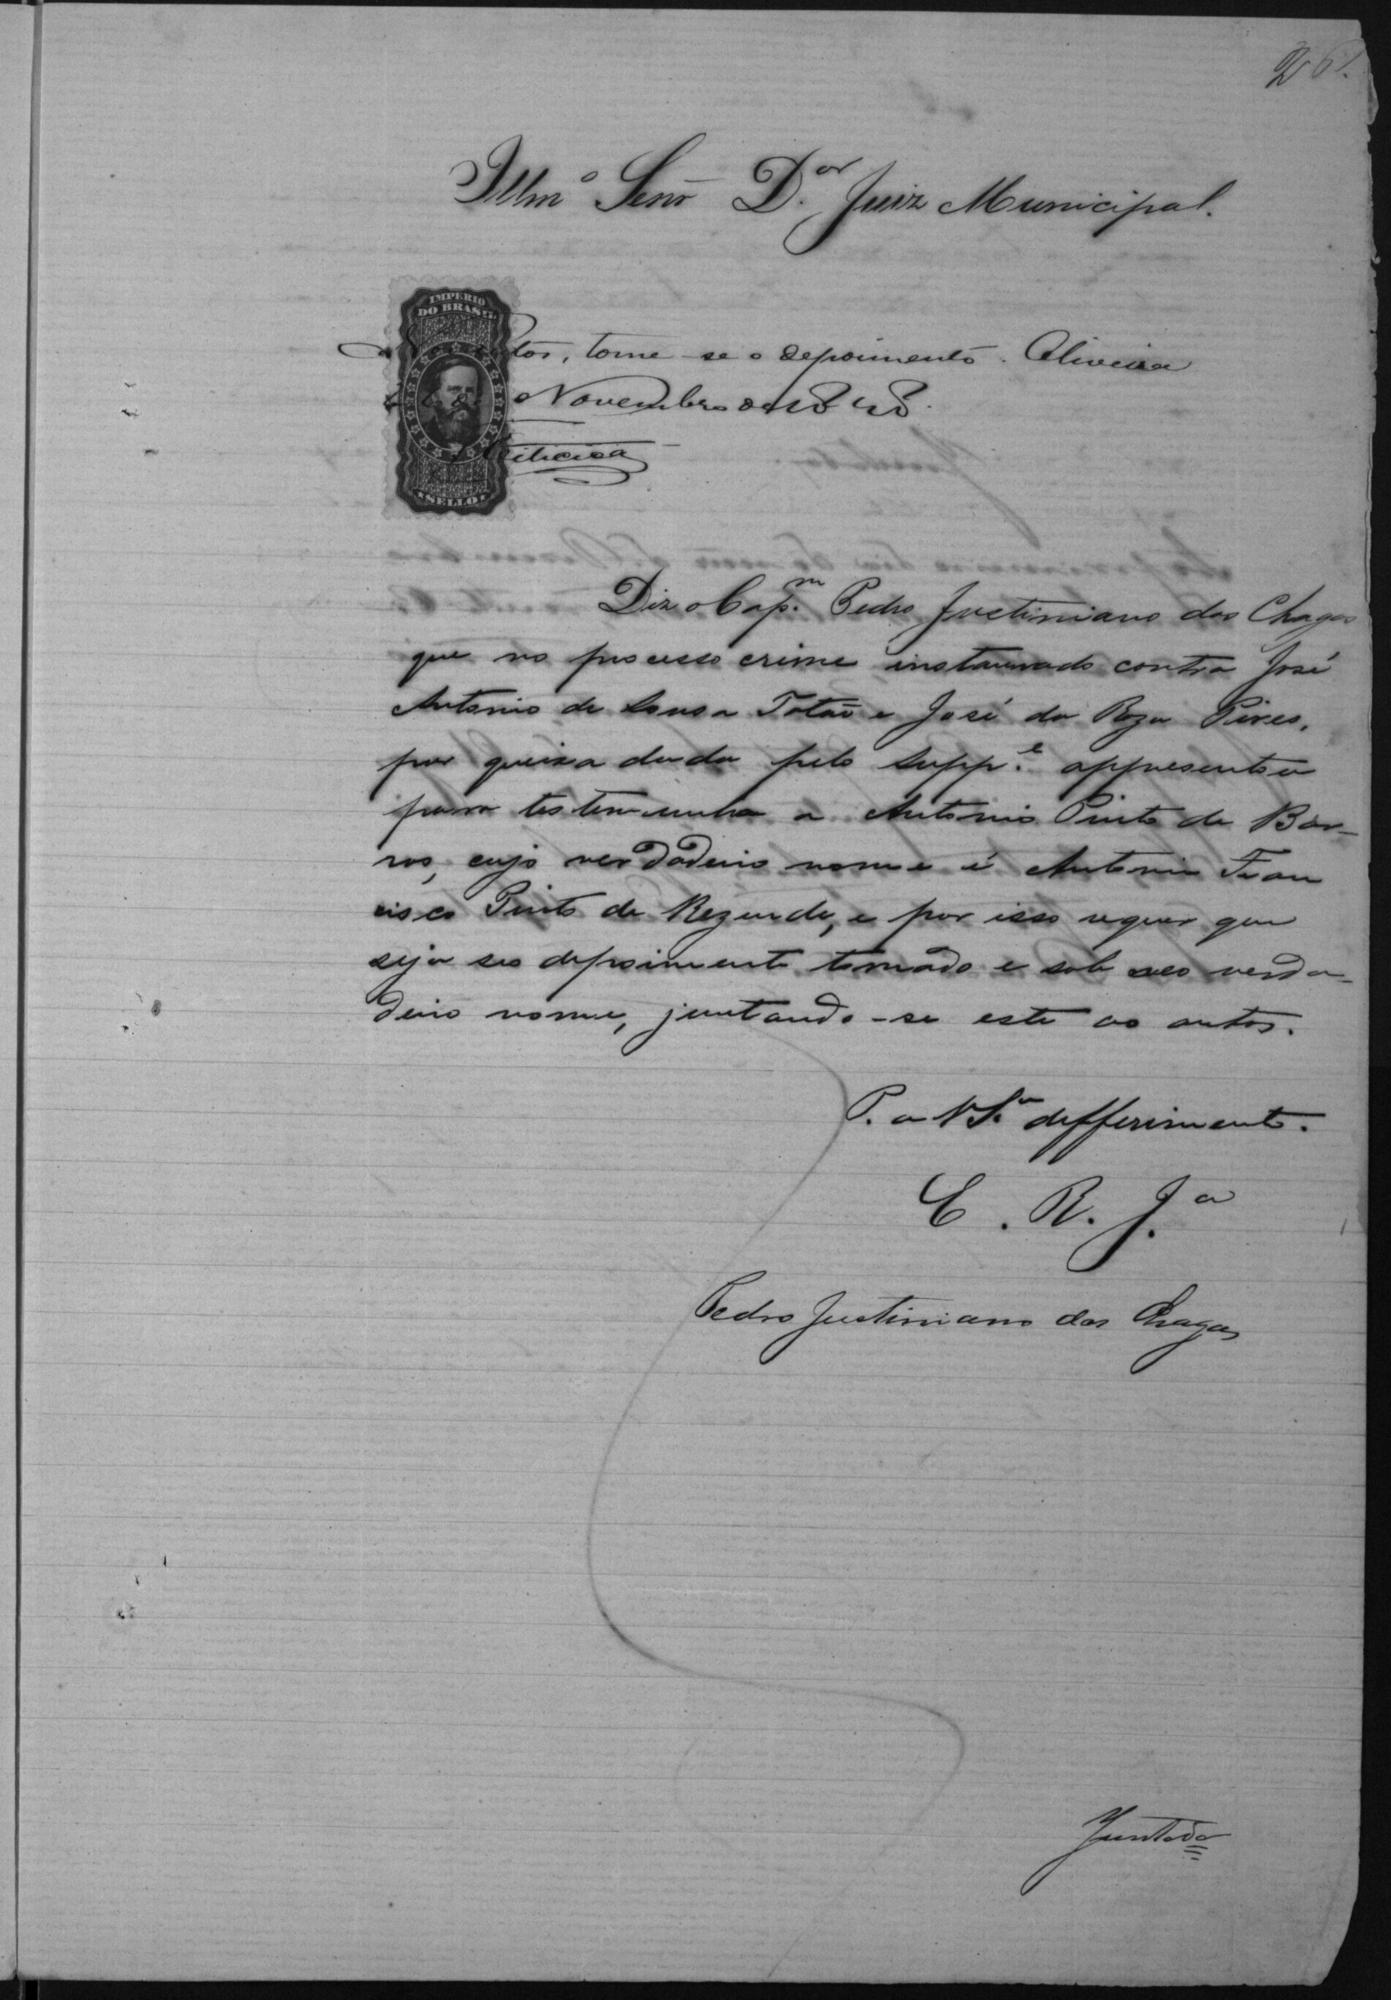 26.
Illmº Senr D.or Juiz Municipal.
IMPERIO
DO BRASIL
tos, tome-se o depoimento. Oliveira
Novembro de 1878.
SELLO
Diz o Cap.m Pedro Justiniano das Chagas
que no processo crime instaurado contra José
Antonio de Sousa Totão e José da Roza Pires,
por queixa dada pelo Supp.e appresentou
para testemunha a Antonio Pinto de Bar-
ros, cujo verdadeiro nome é Antonio Fran
cisco Pinto de Rezende, e por isso requer que
seja seo depoimento tomado e sob seo verda-
deiro nome, juntando-se este ao autos.
P. a V S.a defferimento.
E. R. J.a
Pedro Justiniano das Chagas
Juntada